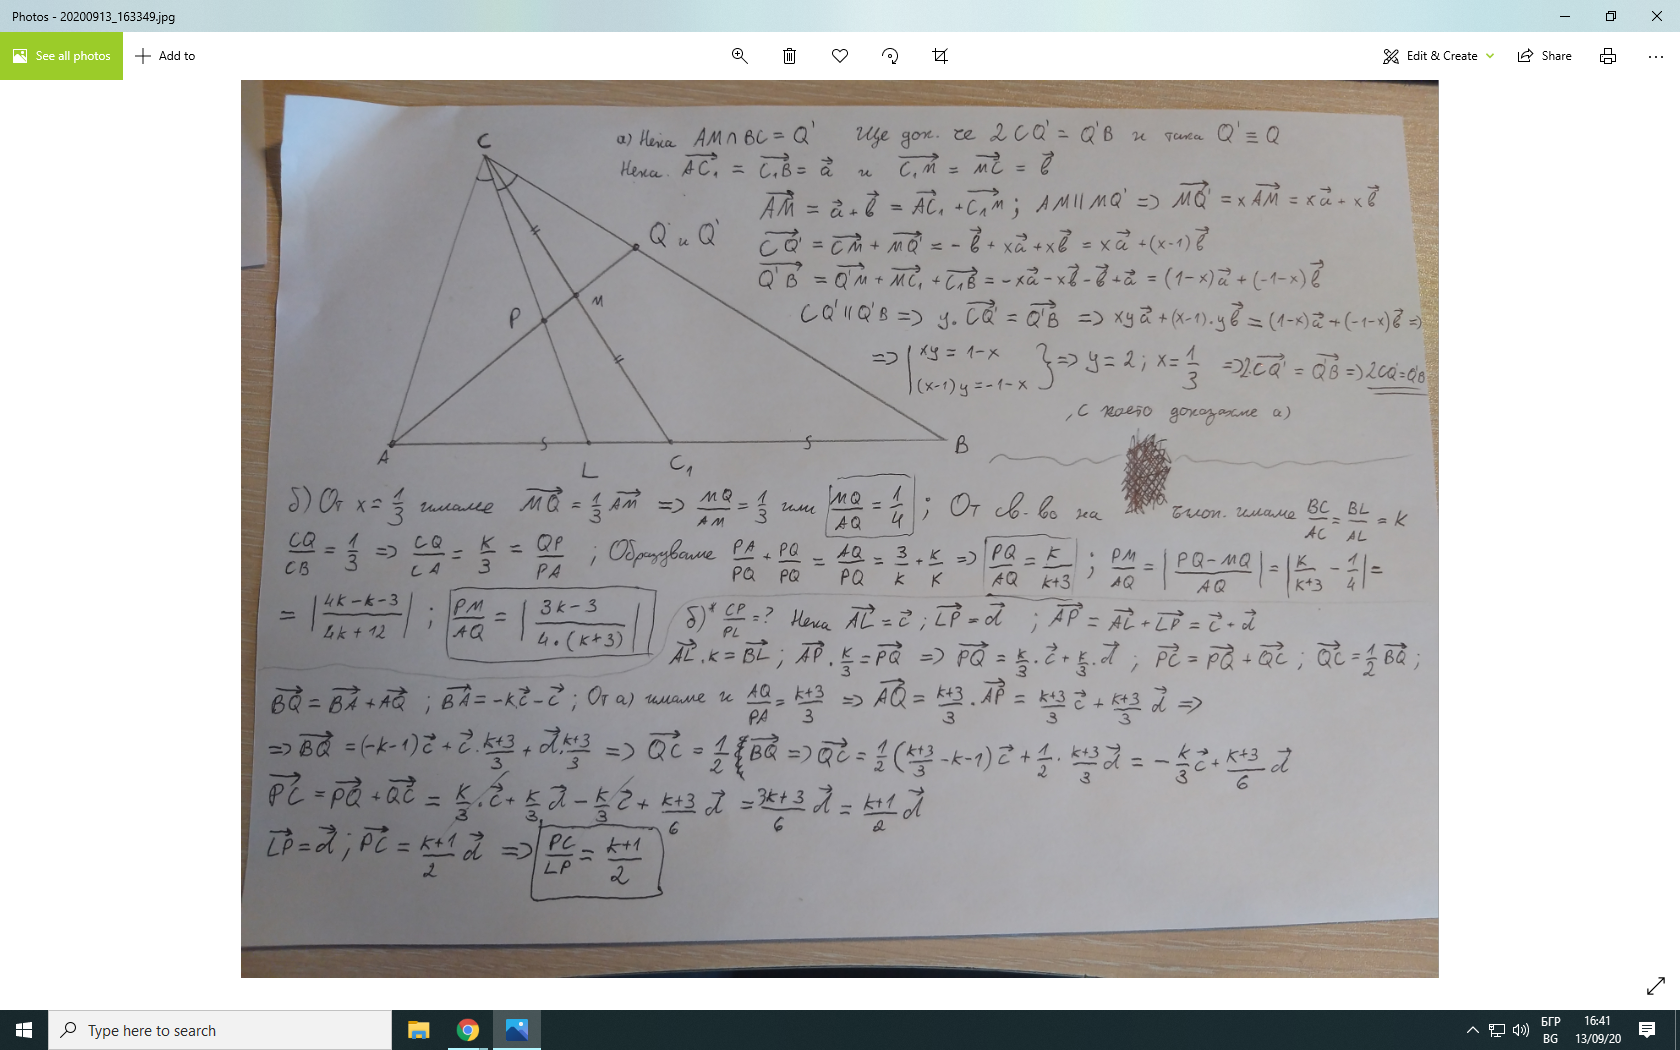 Photos - 20200913_163349.jpg
See all photos
Add to
Edit & Create
Share
C
Q и Q'
M
P
A
L
C₁
B
а) Нека AM ∩ BC = Q' Ще док. че 2CQ' = Q'B и така Q' ≡ Q
Нека. AC₁→ = C₁B→ = a→ и C₁M→ = MC→ = b→
AM→ = a→ + b→ = AC₁→ + C₁M→ ; AM ∥ MQ' => MQ'→ = xAM→ = xa→ + xb→
CQ'→ = CM→ + MQ'→ = -b→ + xa→ + xb→ = xa→ + (x-1)b→
Q'B→ = Q'M→ + MC₁→ + C₁B→ = -xa→ - xb→ - b→ + a→ = (1-x)a→ + (-1-x)b→
CQ' ∥ Q'B => y.CQ'→ = Q'B→ => xya→ + (x-1).yb→ = (1-x)a→ + (-1-x)b→ =>
=> { xy = 1-x
(x-1)y = -1-x } => y = 2 ; x = 1/3 => 2CQ'→ = Q'B→ => 2CQ' = Q'B
, с което доказахме а)
б) От x = 1/3 имаме MQ→ = 1/3 AM→ => MQ/AM = 1/3 или MQ/AQ = 1/4 ; От св-во на ъглоп. имаме BC/AC = BL/AL = K
CQ/CB = 1/3 => CQ/CA = K/3 = QP/PA ; Образуваме PA/PQ + PQ/PQ = AQ/PQ = 3/K + K/K => PQ/AQ = K/(K+3) ; PM/AQ = |(PQ-MQ)/AQ| = |K/(K+3) - 1/4| =
= |(4K-K-3)/(4K+12)| ; PM/AQ = |(3K-3)/(4.(K+3))| б)* CP/PL = ? Нека AL→ = c→ ; LP→ = d→ ; AP→ = AL→ + LP→ = c→ + d→
AL→.K = BL→ ; AP→.K/3 = PQ→ => PQ→ = K/3.c→ + K/3.d→ ; PC→ = PQ→ + QC→ ; QC→ = 1/2 BQ→ ;
BQ→ = BA→ + AQ→ ; BA→ = -Kc→ - c→ ; От а) имаме и AQ/PA = (K+3)/3 => AQ→ = (K+3)/3 . AP→ = (K+3)/3 c→ + (K+3)/3 d→ =>
=> BQ→ = (-K-1)c→ + c→.(K+3)/3 + d→.(K+3)/3 => QC→ = 1/2 BQ→ => QC→ = 1/2((K+3)/3 - K-1)c→ + 1/2 . (K+3)/3 d→ = -K/3 c→ + (K+3)/6 d→
PC→ = PQ→ + QC→ = K/3.c→ + K/3 d→ - K/3 c→ + (K+3)/6 d→ = (3K+3)/6 d→ = (K+1)/2 d→
LP→ = d→ ; PC→ = (K+1)/2 d→ => PC/LP = (K+1)/2
Type here to search
БГР
BG
16:41
13/09/20